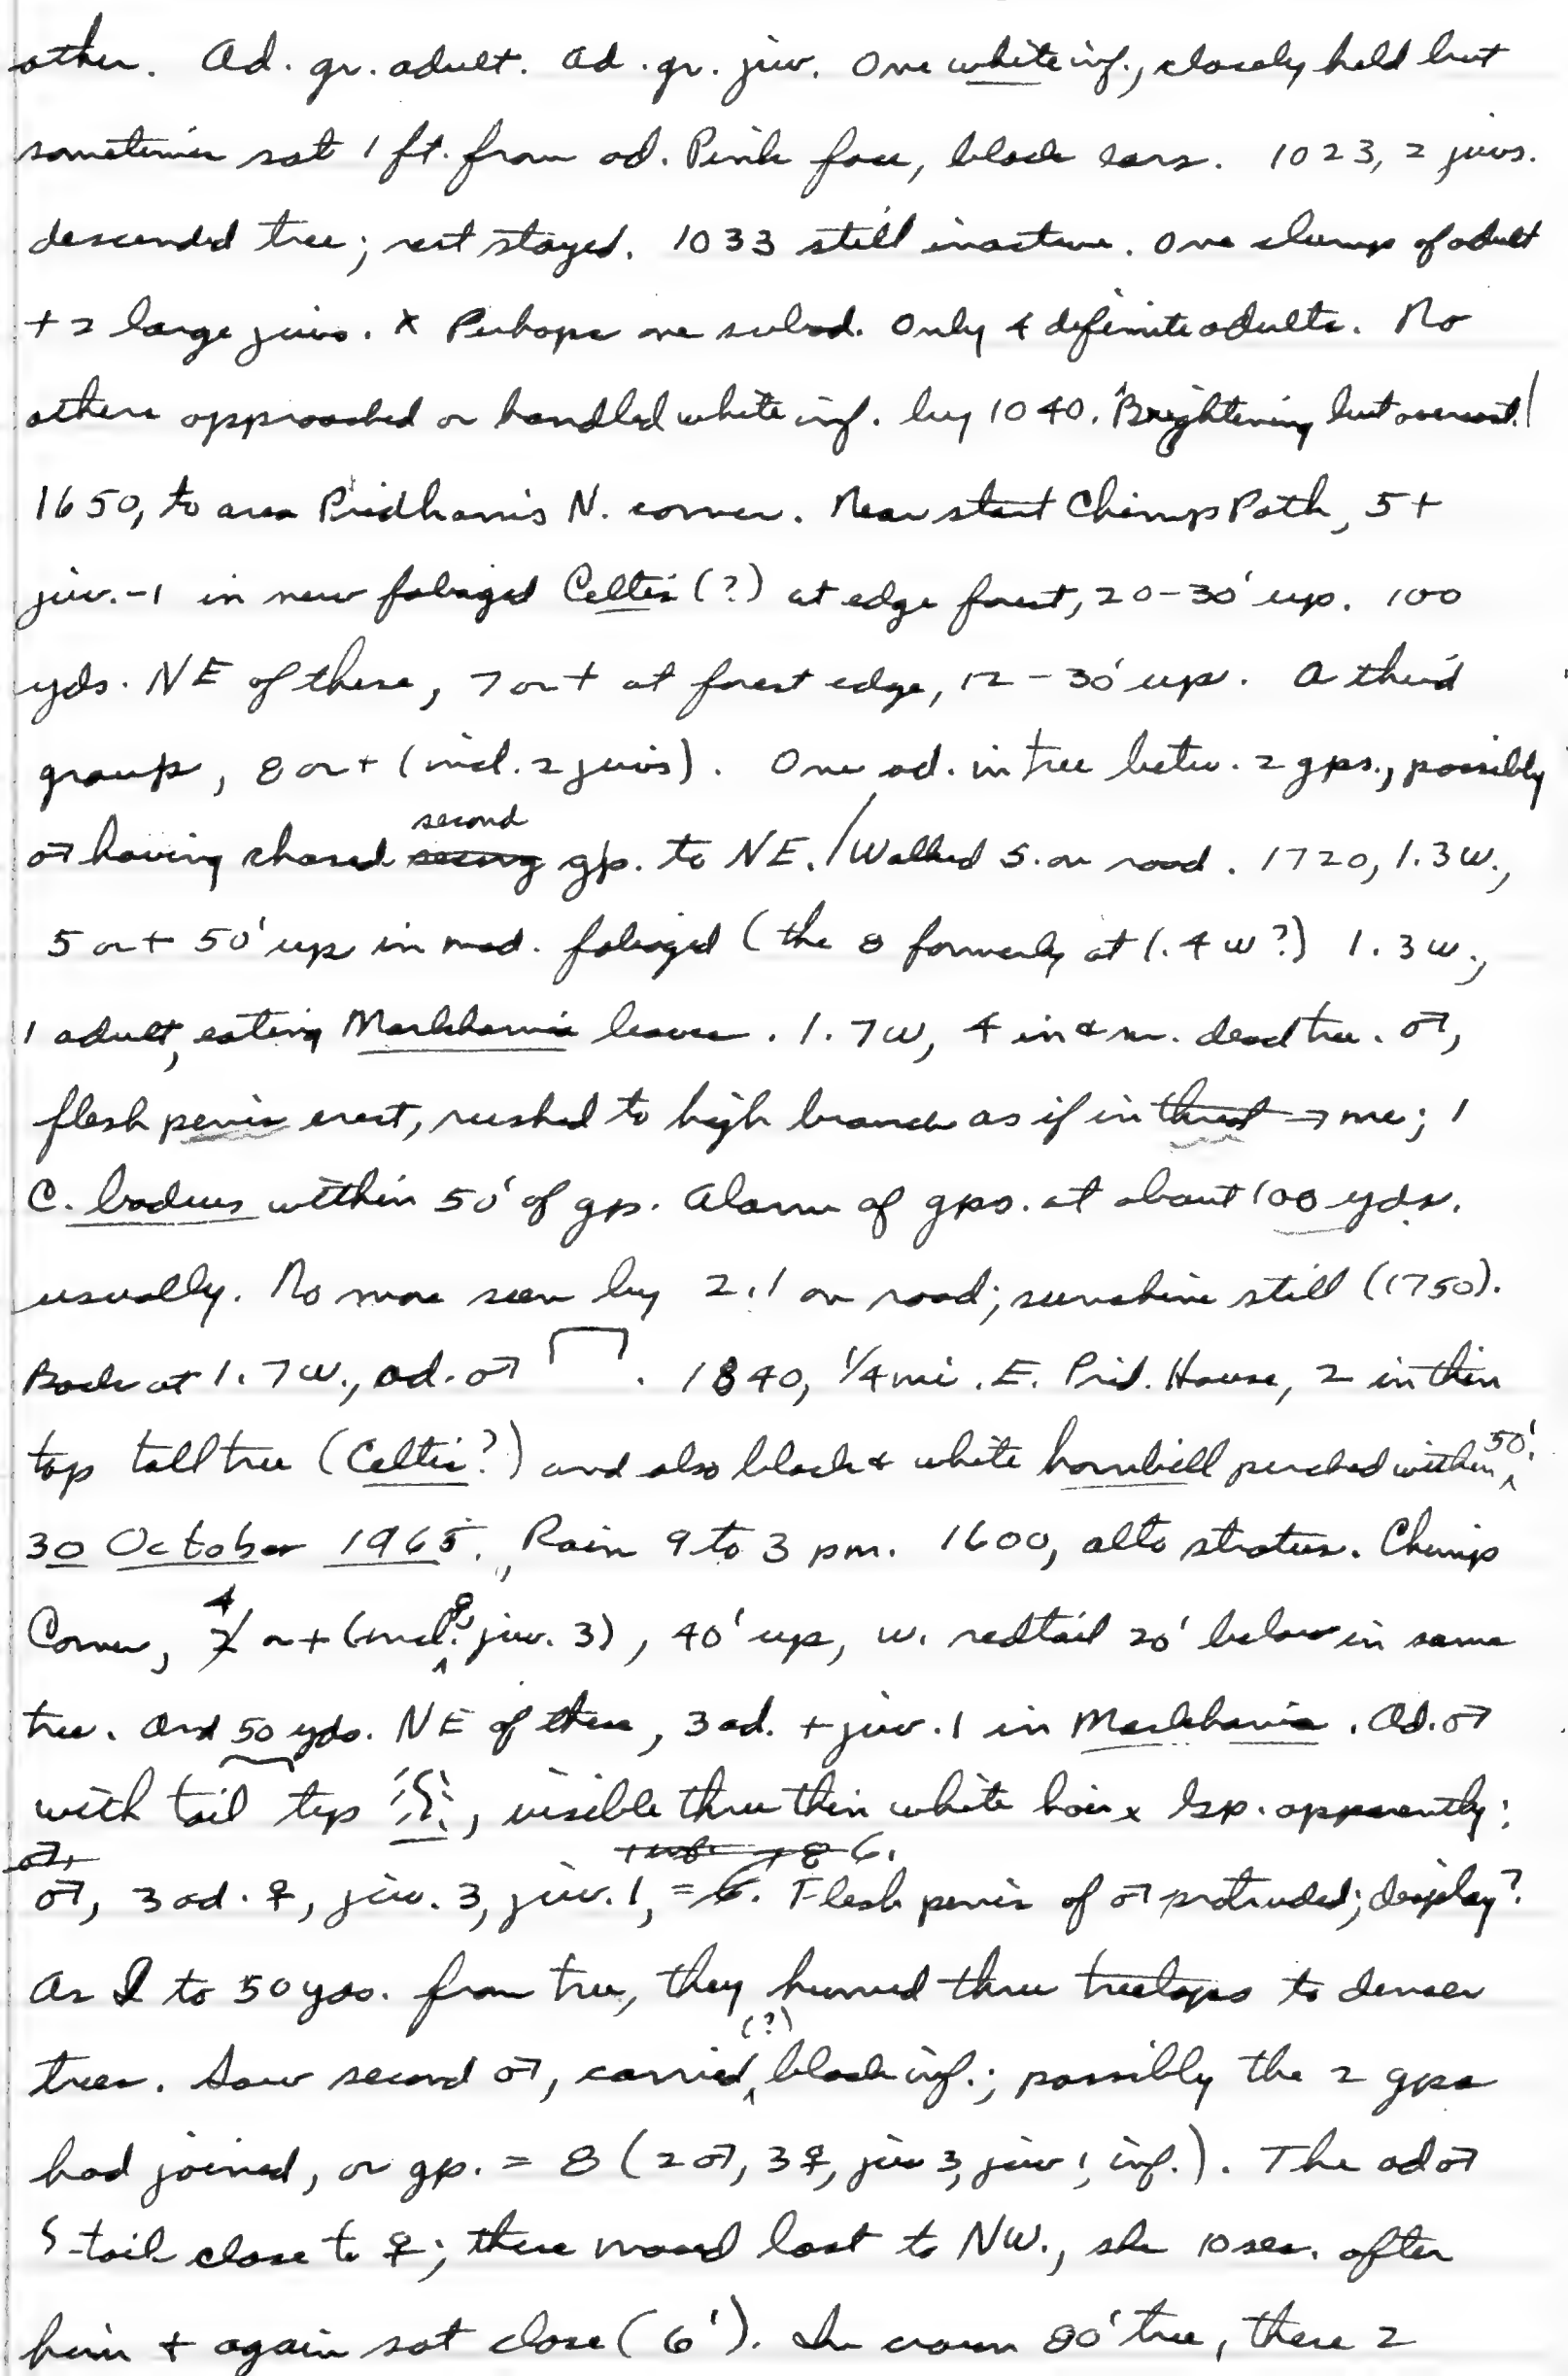 other. Ad. gr. adult. Ad. gr. juv. One white inf., closely held but
sometimes sat 1 ft. from ad. Pink face, black ears. 1023, 2 juvs.
descended tree; rest stayed. 1033 still inactive. One clump of adult
+ 2 large juvs. x Perhaps one subad. Only 4 definite adults. No
others approached or handled white inf. by 1040. Brightening but overcast./
1650, to area Pridham's N. corner. Near start Chimp Path, 5+
juv.-1 in new foliaged Celtis (?) at edge forest, 20-30' up. 100
yds. NE of these, 7 or + at forest edge, 12-30' up. A third
group, 8 or + (incl. 2 juvs). One ad. in tree betw. 2 gps., possibly
♂ having chased second gp. to NE. / Walked S. on road. 1720, 1.3 w.,
5 or + 50' up in mod. foliaged (the 8 formerly at 1.4 w?) 1.3 w.,
1 adult, eating Markhamia leaves. 1.7 w, 4 in & nr. dead tree. ♂,
flesh penis erect, rushed to high branch as if in threat → me; 1
C. badius within 50' of gp. Alarm of gps. at about 100 yds.
usually. No more seen by 2.1 on road; sunshine still (1750).
Back at 1.7 w., ad. ♂ . 1840, 1/4 mi. E. Prid. House, 2 in thin
top tall tree (Celtis?) and also black & white hornbill perched within 50'.
30 October 1965. Rain 9 to 3 pm. 1600, alto stratus. Chimp
Corner, 4 or + (incl. ♀, juv. 3), 40' up, w. redtail 20' below in same
tree. And 50 yds. NE of these, 3 ad. + juv. 1 in Markhamia. Ad. ♂
with tail tip , visible thru thin white hair x Gp. apparently:
♂, 3 ad. ♀, juv. 3, juv. 1, = 6. Flesh penis of ♂ protruded; display?
As I to 50 yds. from tree, they hurried thru treetops to denser
trees. Saw second ♂, carried (?) black inf.; possibly the 2 gps
had joined, or gp. = 8 (2 ♂, 3 ♀, juv 3, juv 1, inf.). The ad ♂
-tail close to ♀; these moved last to NW., she 10 sec. after
him + again sat close (6'). In crown 80' tree, these 2